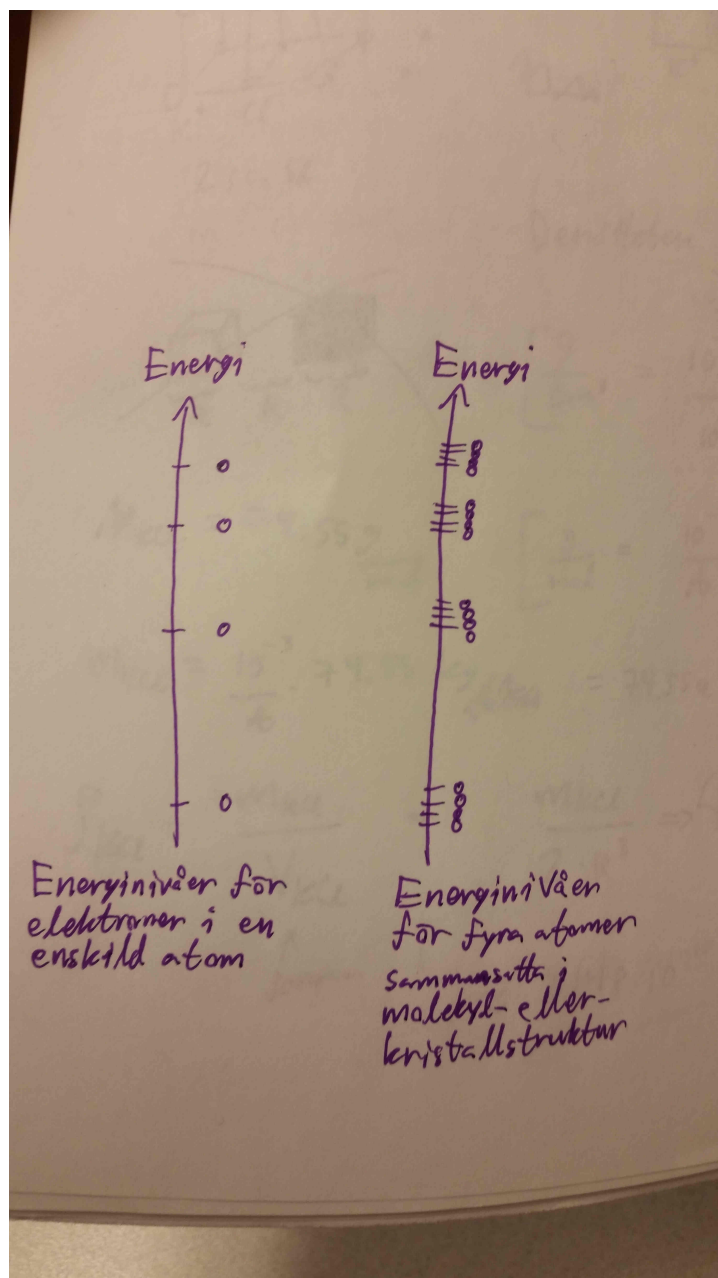 Energi
Energinivåer för
elektroner i en
enskild atom
Energi
Energinivåer
för fyra atomer
sammansatta i
molekyl- eller-
kristallstruktur